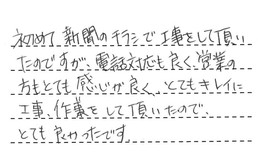 初めて新聞のチラシで工事をして頂い
たのですが、電話対応も良く、営業の
方もとても感じが良く、とてもキレイに
工事、作業をして頂いたので、
とても良かったです。